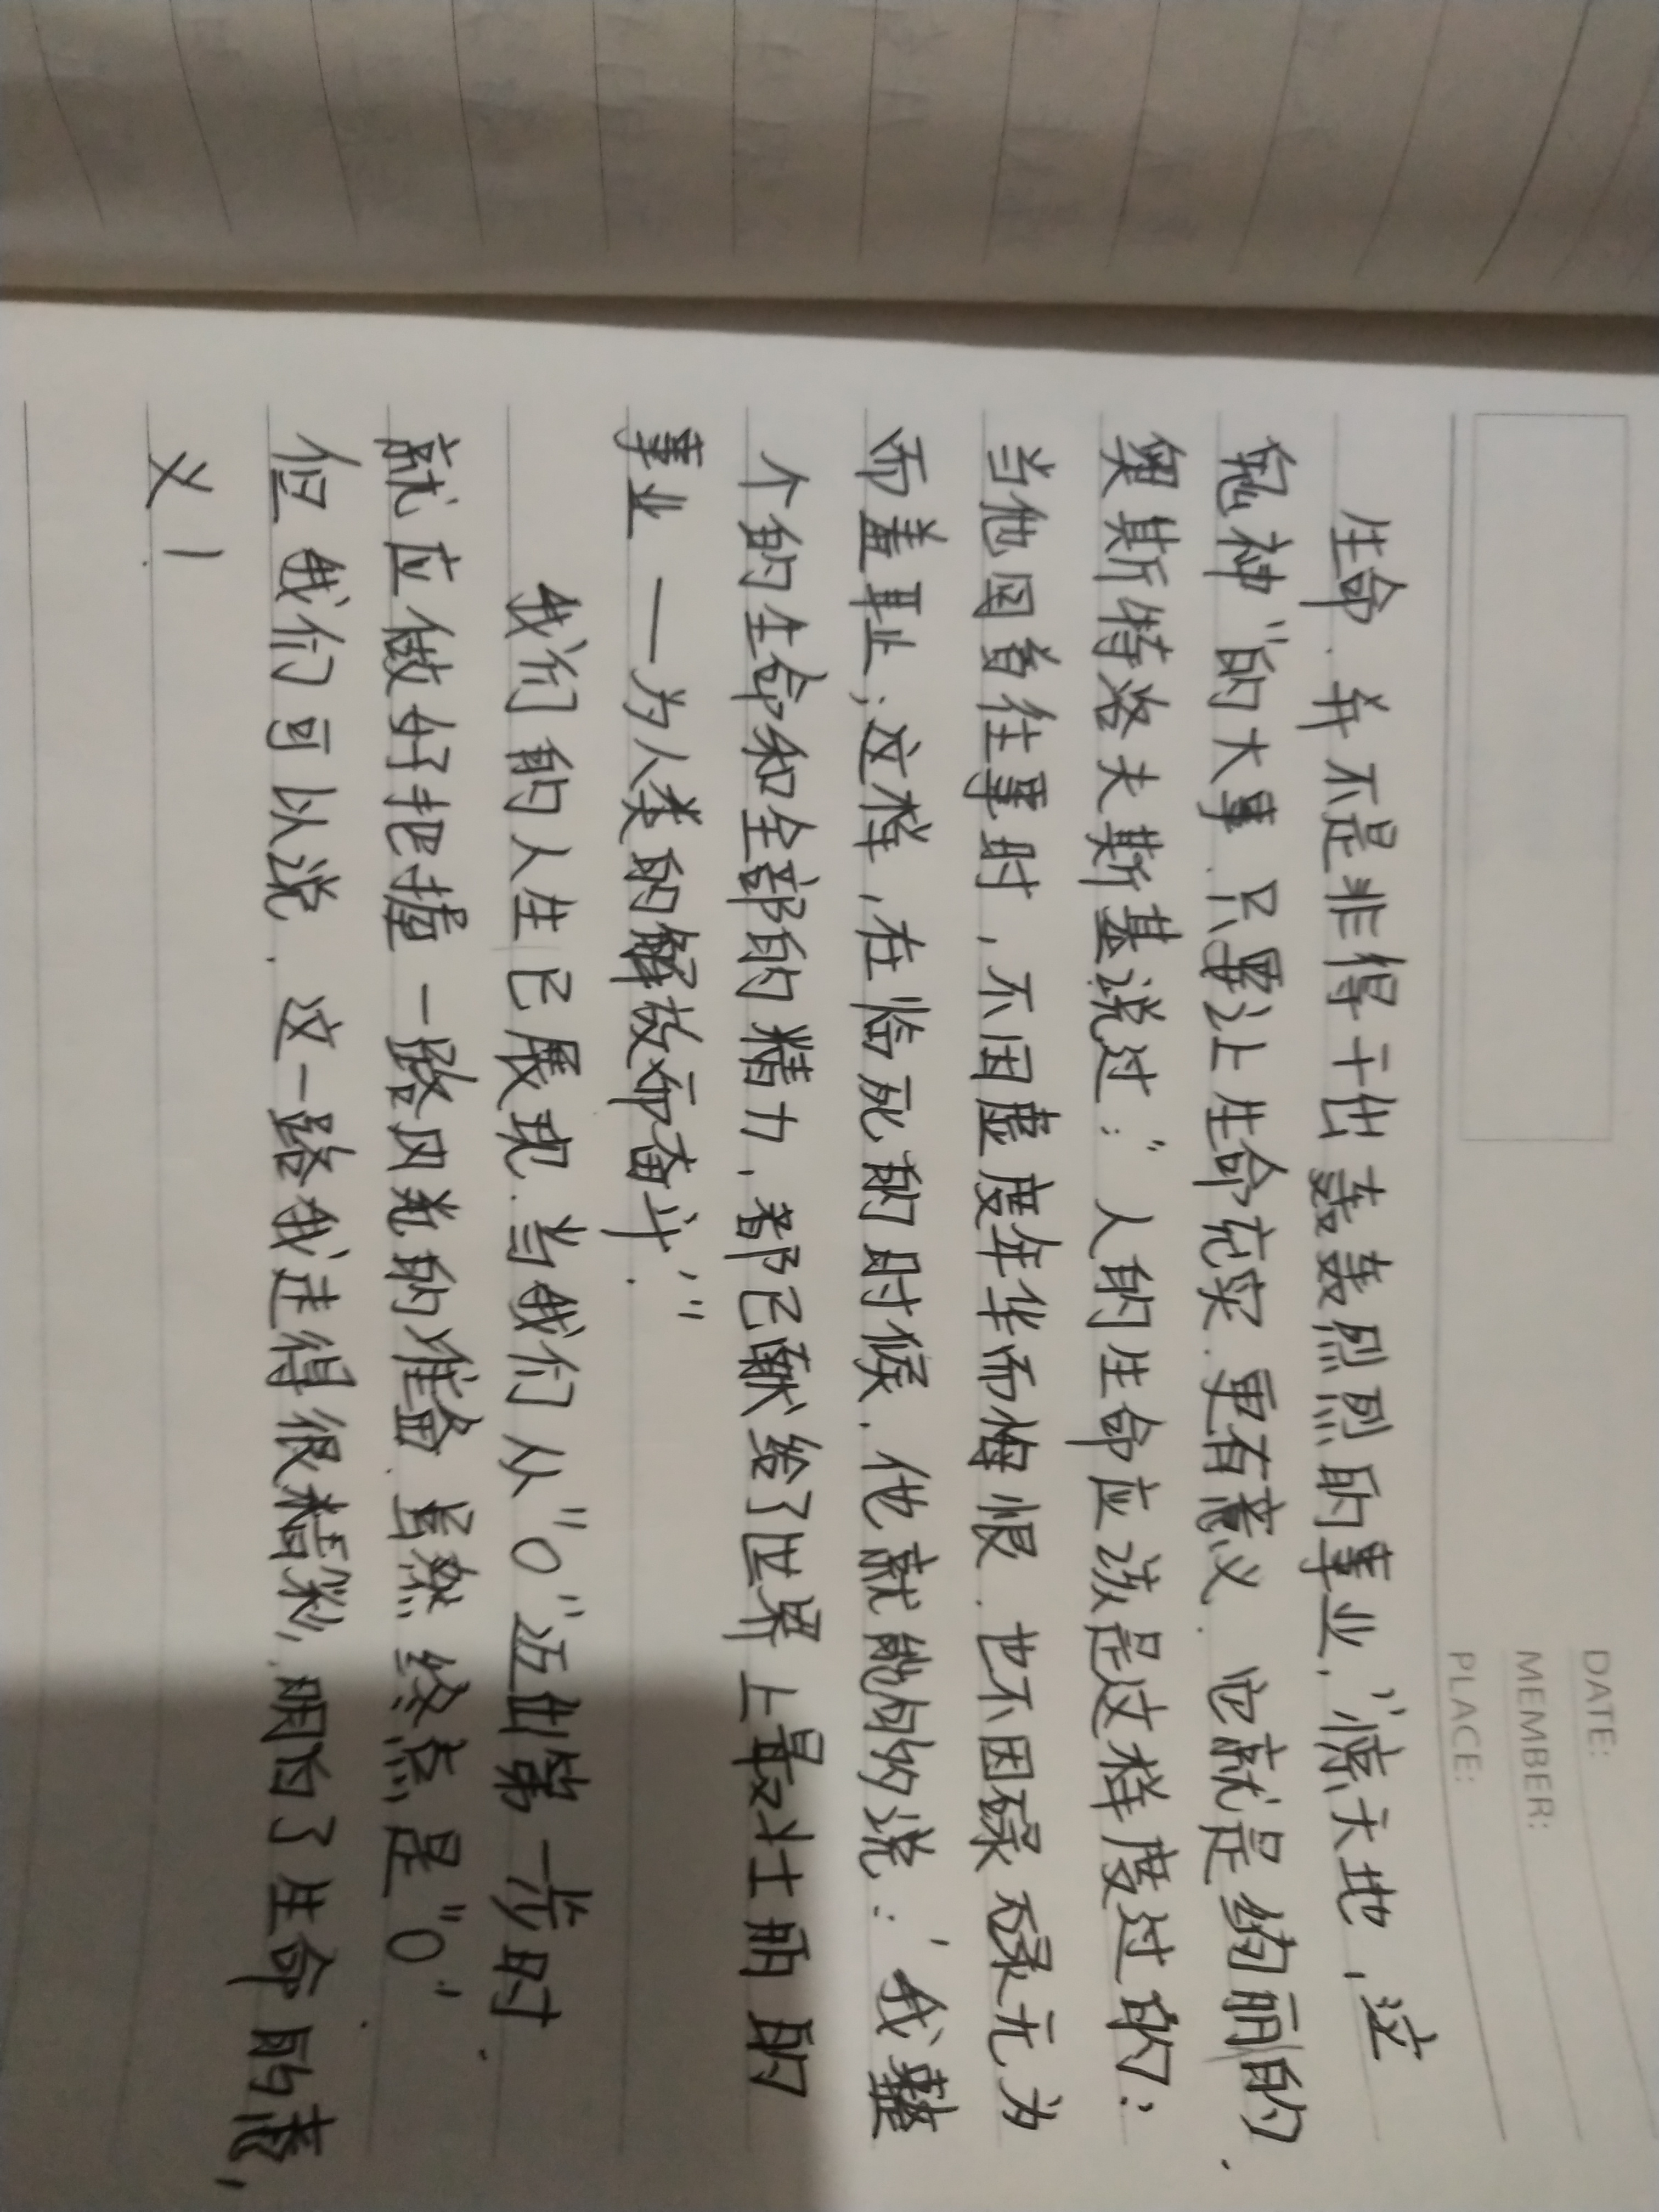 DATE:
MEMBER:
PLACE:
生命.并不是非得干出轰轰烈烈的事业,“惊天地,泣
鬼神”的大事.只要让生命充实.更有意义.也就是绚丽的.
奥斯特洛夫斯基说过:“人的生命应该是这样度过的:
当他回首往事时,不因虚度年华而悔恨.也不因碌碌无为
而羞耻;这样,在临死的时候,他就能够说:‘我整
个的生命和全部的精力,都已献给了世界上最壮丽的
事业——为人类的解放而奋斗.’”
我们的人生已展现.当我们从“0”迈出第一步时
就应做好把握一路风光的准备.虽然终点是“0”
但我们可以说.这一路我走得很精彩,明白了生命的意
义!